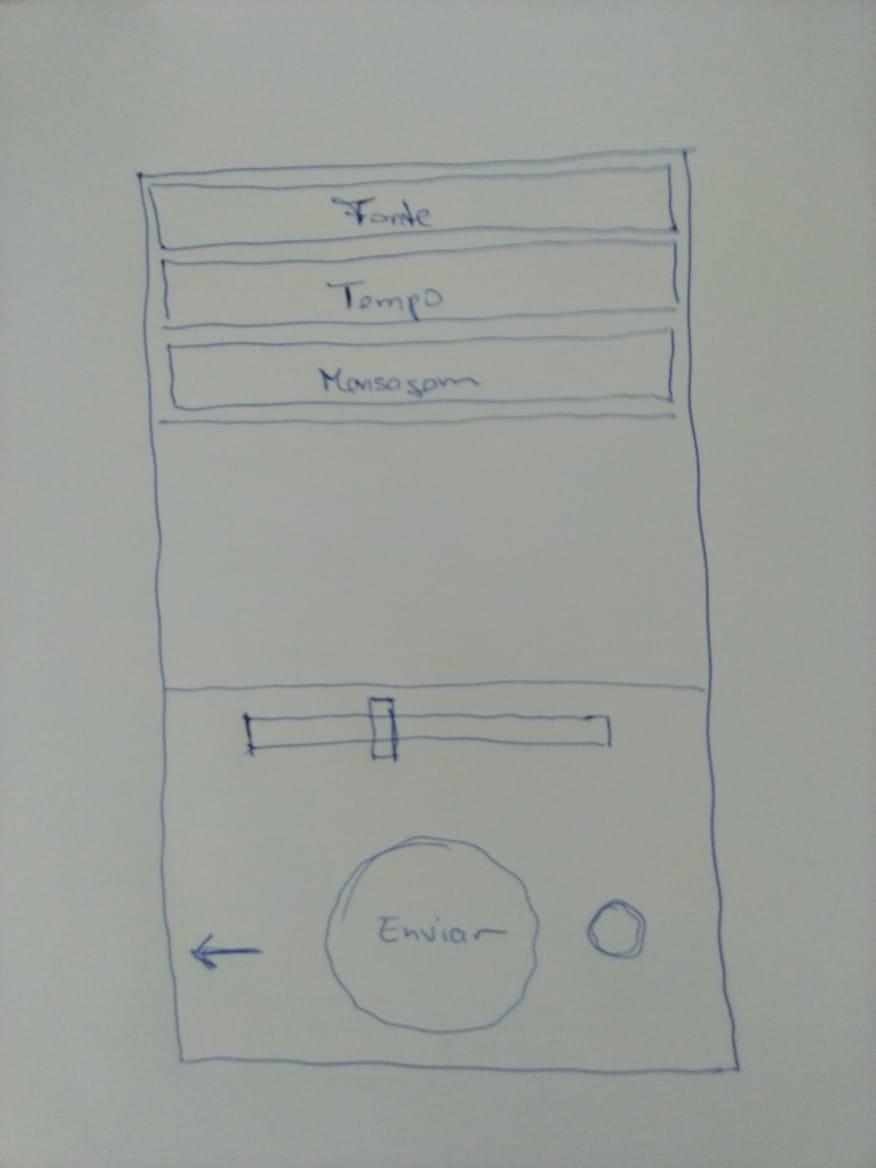 Fonte
Tempo
Mensagem
Enviar